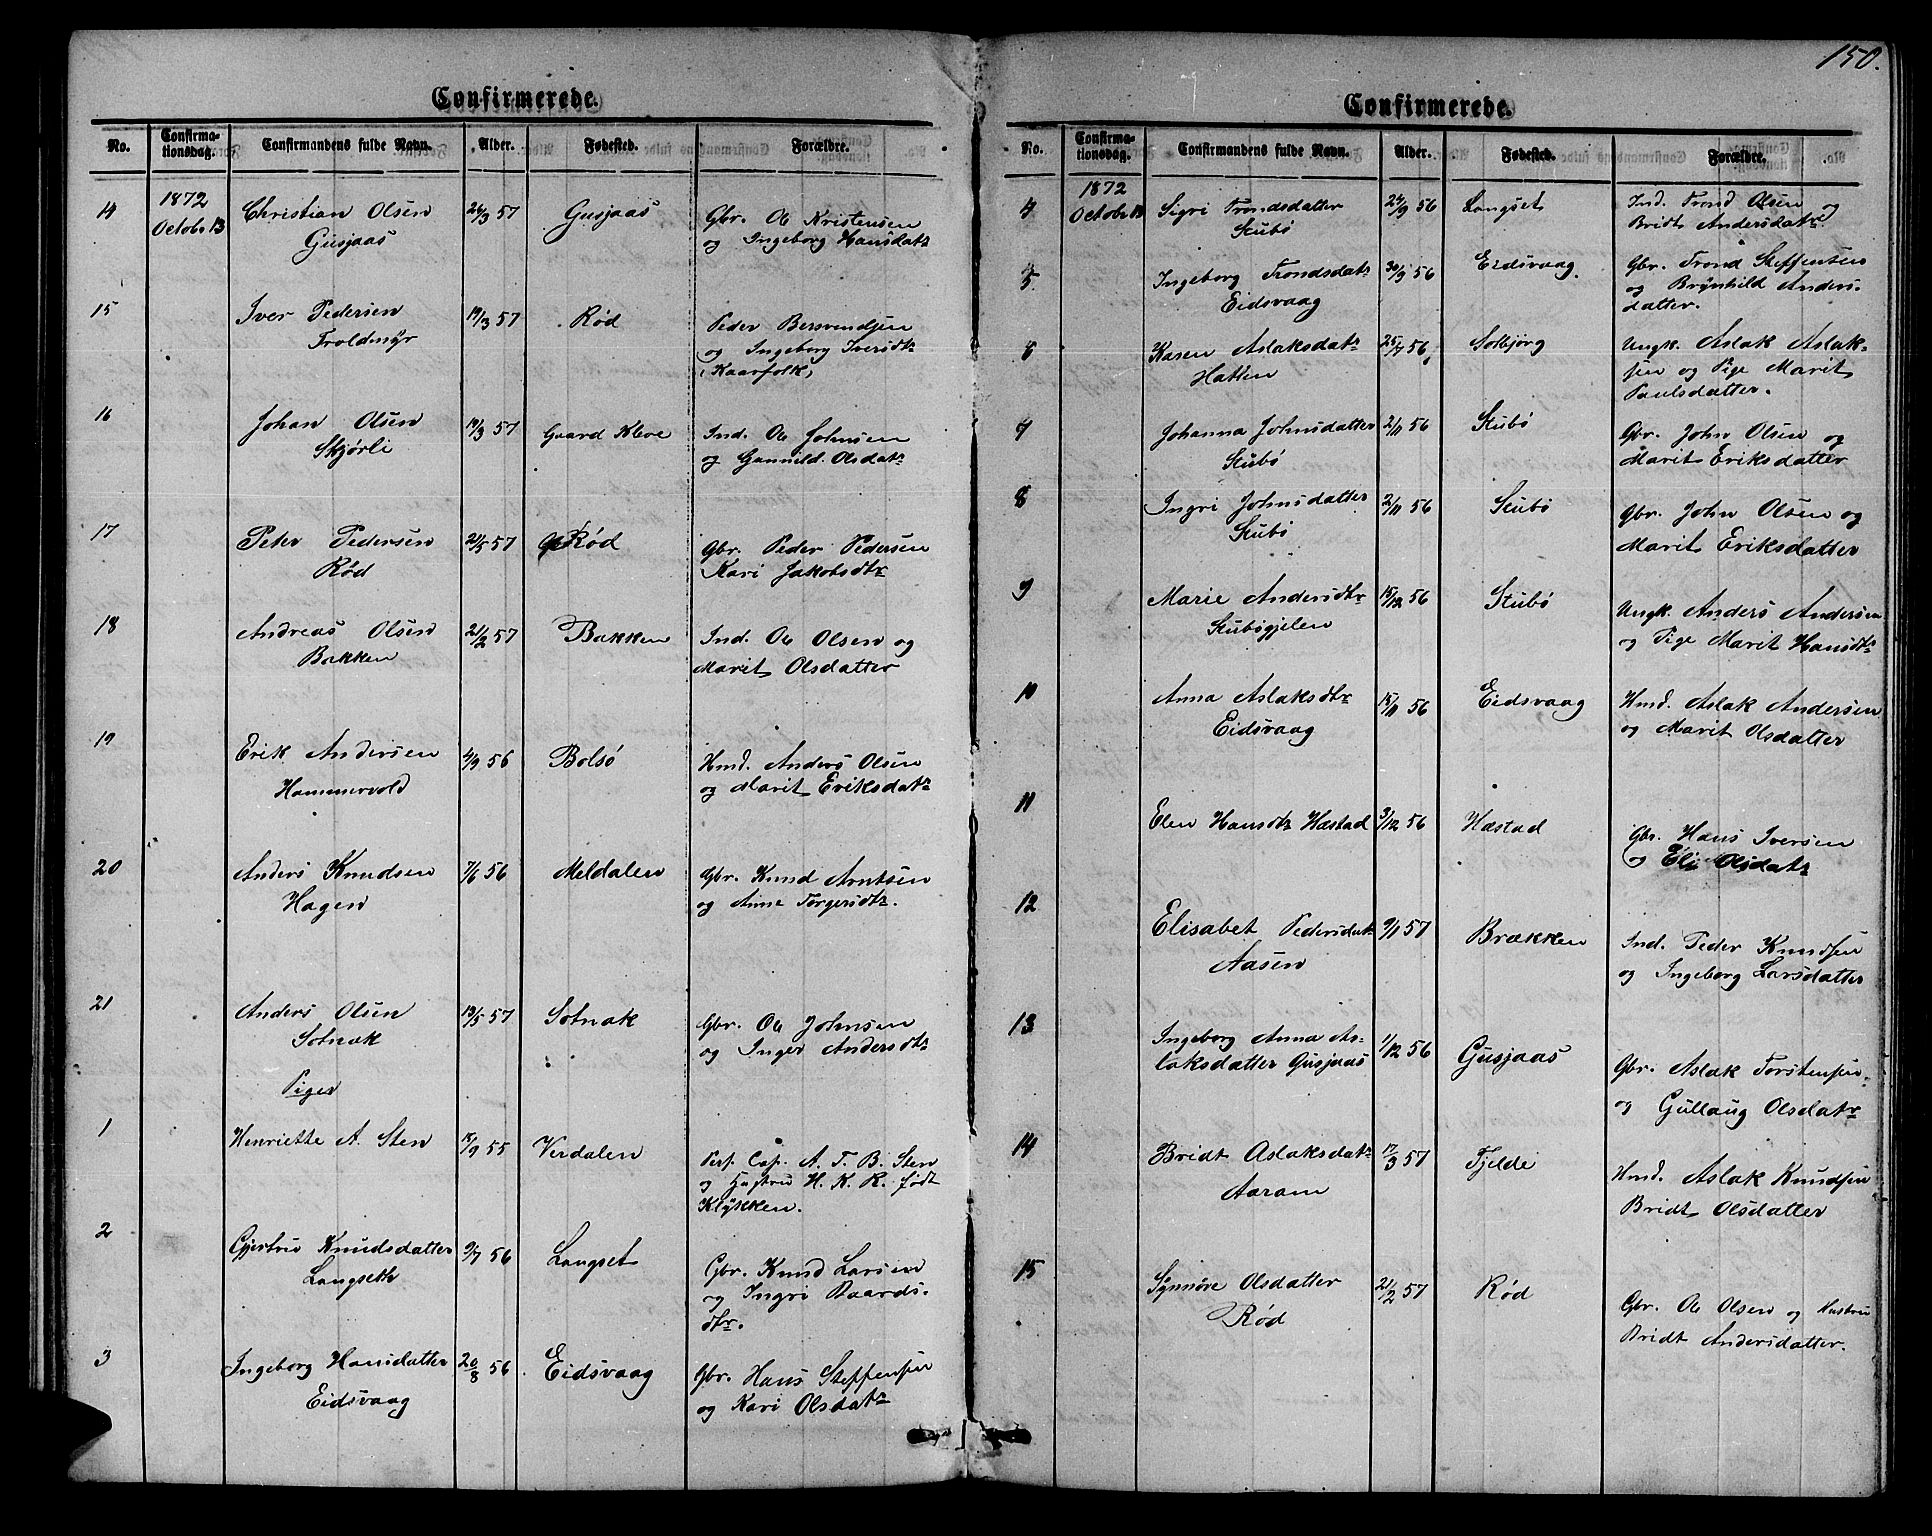 Confirmerede.
No. Confirmationsdag. Confirmandens fulde Navn. Alder. Fødested. Forældre.
14 1872 Octobr 13 Christian Olsen 26/3 57 Gusjaas Gbr. Ole Kristensen
Gusjaas og Ingeborg Hansdatr
15 Iver Pedersen 19/3 57 Rød Peder Bersvendsen
Troldmyr og Ingeborg Iversdtr
(Kaarfolk)
16 Johan Olsen 19/3 57 Gaard Kleve Ind. Ole Johnsen
Skjørli og Gunnild Olsdatr
17 Peter Pedersen 21/5 57 Rød Gbr. Peder Pedersen
Rød Kari Jakobsdtr
18 Andreas Olsen 21/2 57 Bakken Ind. Ole Olsen og
Bakken Marit Olsdatter
19 Erik Andersen 4/9 56 Bolsø Hmd. Anders Olsen
Hammervold og Marit Eriksdatr
20 Anders Knudsen 7/6 56 Meldalen Gbr. Knud Arntsen
Hagen og Anne Torgersdtr.
21 Anders Olsen 13/5 57 Sotnak Gbr. Ole Johnsen
Sotnak og Inger Andersdtr
Piger
1 Henriette A. Sten 15/9 55 Verdalen Pers. Cap. A. T. B. Sten
og Hustru H. K. R. født
Klykken.
2 Gjertrud Knudsdatter 9/7 56 Langset Gbr. Knud Larsen
Langseth og Ingri Baards-
dtr.
3 Ingeborg Hansdatter 20/8 56 Eidsvaag Gbr. Hans Steffensen
Eidsvaag og Kari Olsdatr
150.
Confirmerede.
No. Confirmationsdag. Confirmandens fulde Navn. Alder. Fødested. Forældre.
4 1872 Octobr 13 Sigri Trondsdatter 24/9 56 Langset Ind. Trond Olsen og
Stubø Bridt Andersdatr
5 Ingeborg Trondsdatr 30/9 56 Eidsvaag. Gbr. Trond Steffensen
Eidsvaag og Brynhild Anders-
datter.
6 Karen Aslaksdatr 25/7 56 Solbjørg Ungk. Aslak Aslak-
Hatten sen og Pige Marit
Paulsdatter.
7 Johanna Johnsdatter 2/11 56 Stubø Gbr. John Olsen og
Stubø Marit Eriksdatter
8 Ingri Johnsdatter 2/11 56 Stubø Gbr. John Olsen og
Stubø Marit Eriksdatter
9 Marie Andersdtr 15/12 56 Stubø Ungk. Anders Andersen
Stubøgjelen og Pige Marit Hansdtr
10 Anna Aslaksdtr 15/11 56 Eidsvaag Hmd. Aslak Andersen
Eidsvaag og Marit Olsdatter
11 Elen Hansdtr Hæstad 3/12 56 Hæstad Gbr. Hans Iversen
og Eli Olsdatr
12 Elisabet Pedersdatr 9/1 57 Brækken Ind. Peder Knudsen
Aasen og Ingeborg Larsdatter
13 Ingeborg Anna As- 1/12 56 Gusjaas Gbr. Aslak Torstensen
laksdatter Gusjaas og Gullaug Olsdatr
14 Bridt Aslaksdatr 17/3 57 Tjelde Hmd. Aslak Knudsen
Aaram Bridt Olsdatter
15 Synnøve Olsdatter 21/2 57 Rød Gbr. Ole Olsen og Hustru
Rød Bridt Andersdatter.